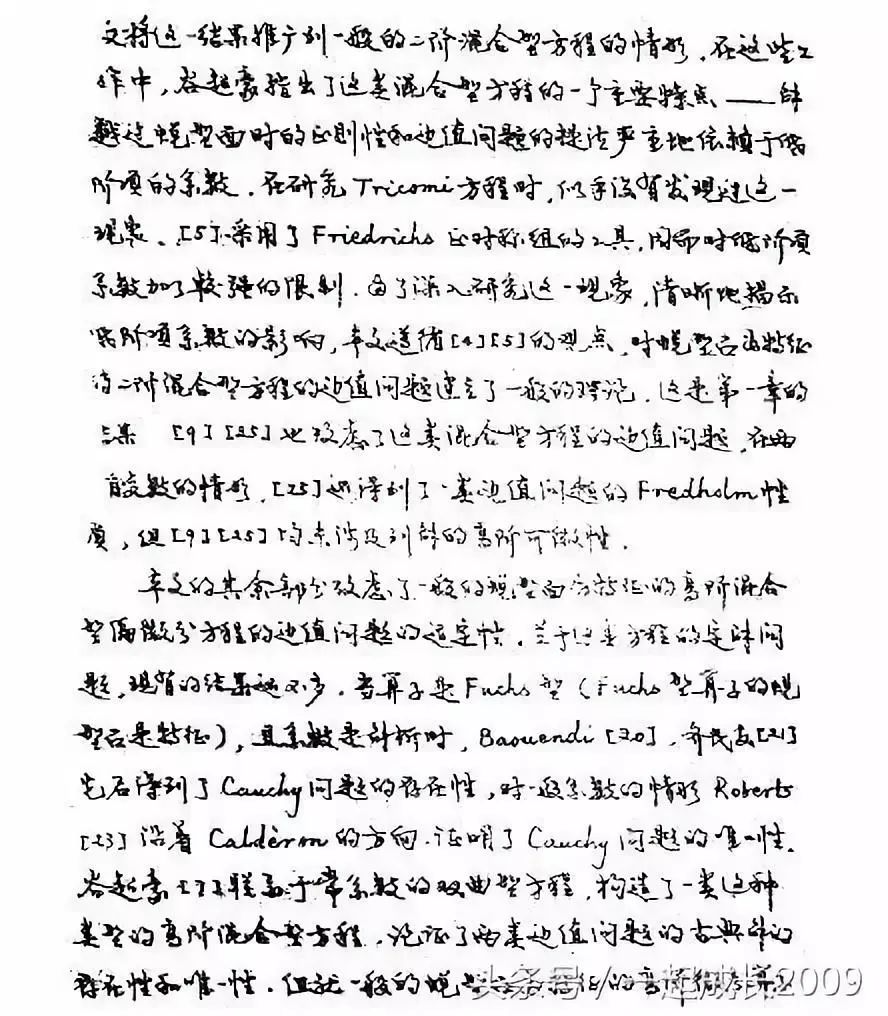 文将这一结果推广到一般的二阶混合型方程的情形．在这些工
作中，谷超豪指出了这类混合型方程的一个主要特点——解
越过蜕型面时的正则性和边值问题的提法严重地依赖于低
阶项的系数．在研究Tricomi方程时，似乎没有发现过这一
现象．[5]采用了Friedrichs正对称组的工具，因而对低阶项
系数加了较强的限制．为了深入研究这一现象，清晰地揭示
低阶项系数的影响，本文遵循[4][5]的观点，对蜕型面为特征
的二阶混合型方程的边值问题建立了一般的理论．这是第一章的
[9][25]也考虑了这类混合型方程的边值问题，在两
变数的情形，[25]还得到了一类边值问题的Fredholm性
质，但[9][25]均未涉及到解的高阶可微性．
本文的其余部分考虑了一般的蜕型面为特征的高阶混合
型偏微分方程的边值问题的适定性．关于这类方程的定解问
题，现有的结果还不多．当算子是Fuchs型（Fuchs型算子的蜕
型面是特征），且系数是解析时，Baouendi[20]，齐民友[21]
先后得到了Cauchy问题的存在性，对一般系数的情形Roberts
[23]沿着Calderon的方向．证明了Cauchy问题的唯一性．
谷超豪[7]联系于常系数的双曲型方程，构造了一类这种
类型的高阶混合型方程．论证了两类边值问题的古典解的
存在性和唯一性．但就一般的蜕型面为特征的高阶
头条号／一起成长2009